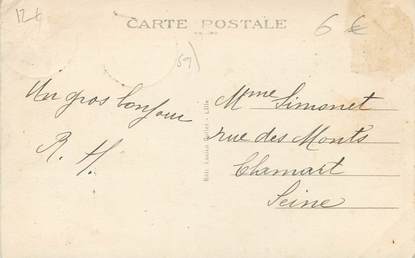 12€
CARTE POSTALE
6 €
59)
Un gros bonjour
R. H.
Edit. Lille
Mme Simonet
rue des Monts
Clamart
Seine